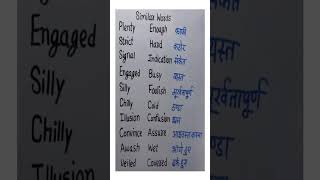 Similar Words
Plenty Enough काफी
Strict Hard कठोर
Signal Indication संकेत
Engaged Busy व्यस्त
Silly Foolish मूर्खतापूर्ण
Chilly Cold ठण्डा
Illusion Confusion भ्रम
Convince Assure आश्वस्त करना
Awash Wet भीगे हुए
Veiled Covered ढके हुए
Engaged
Silly
Chilly
Illusion